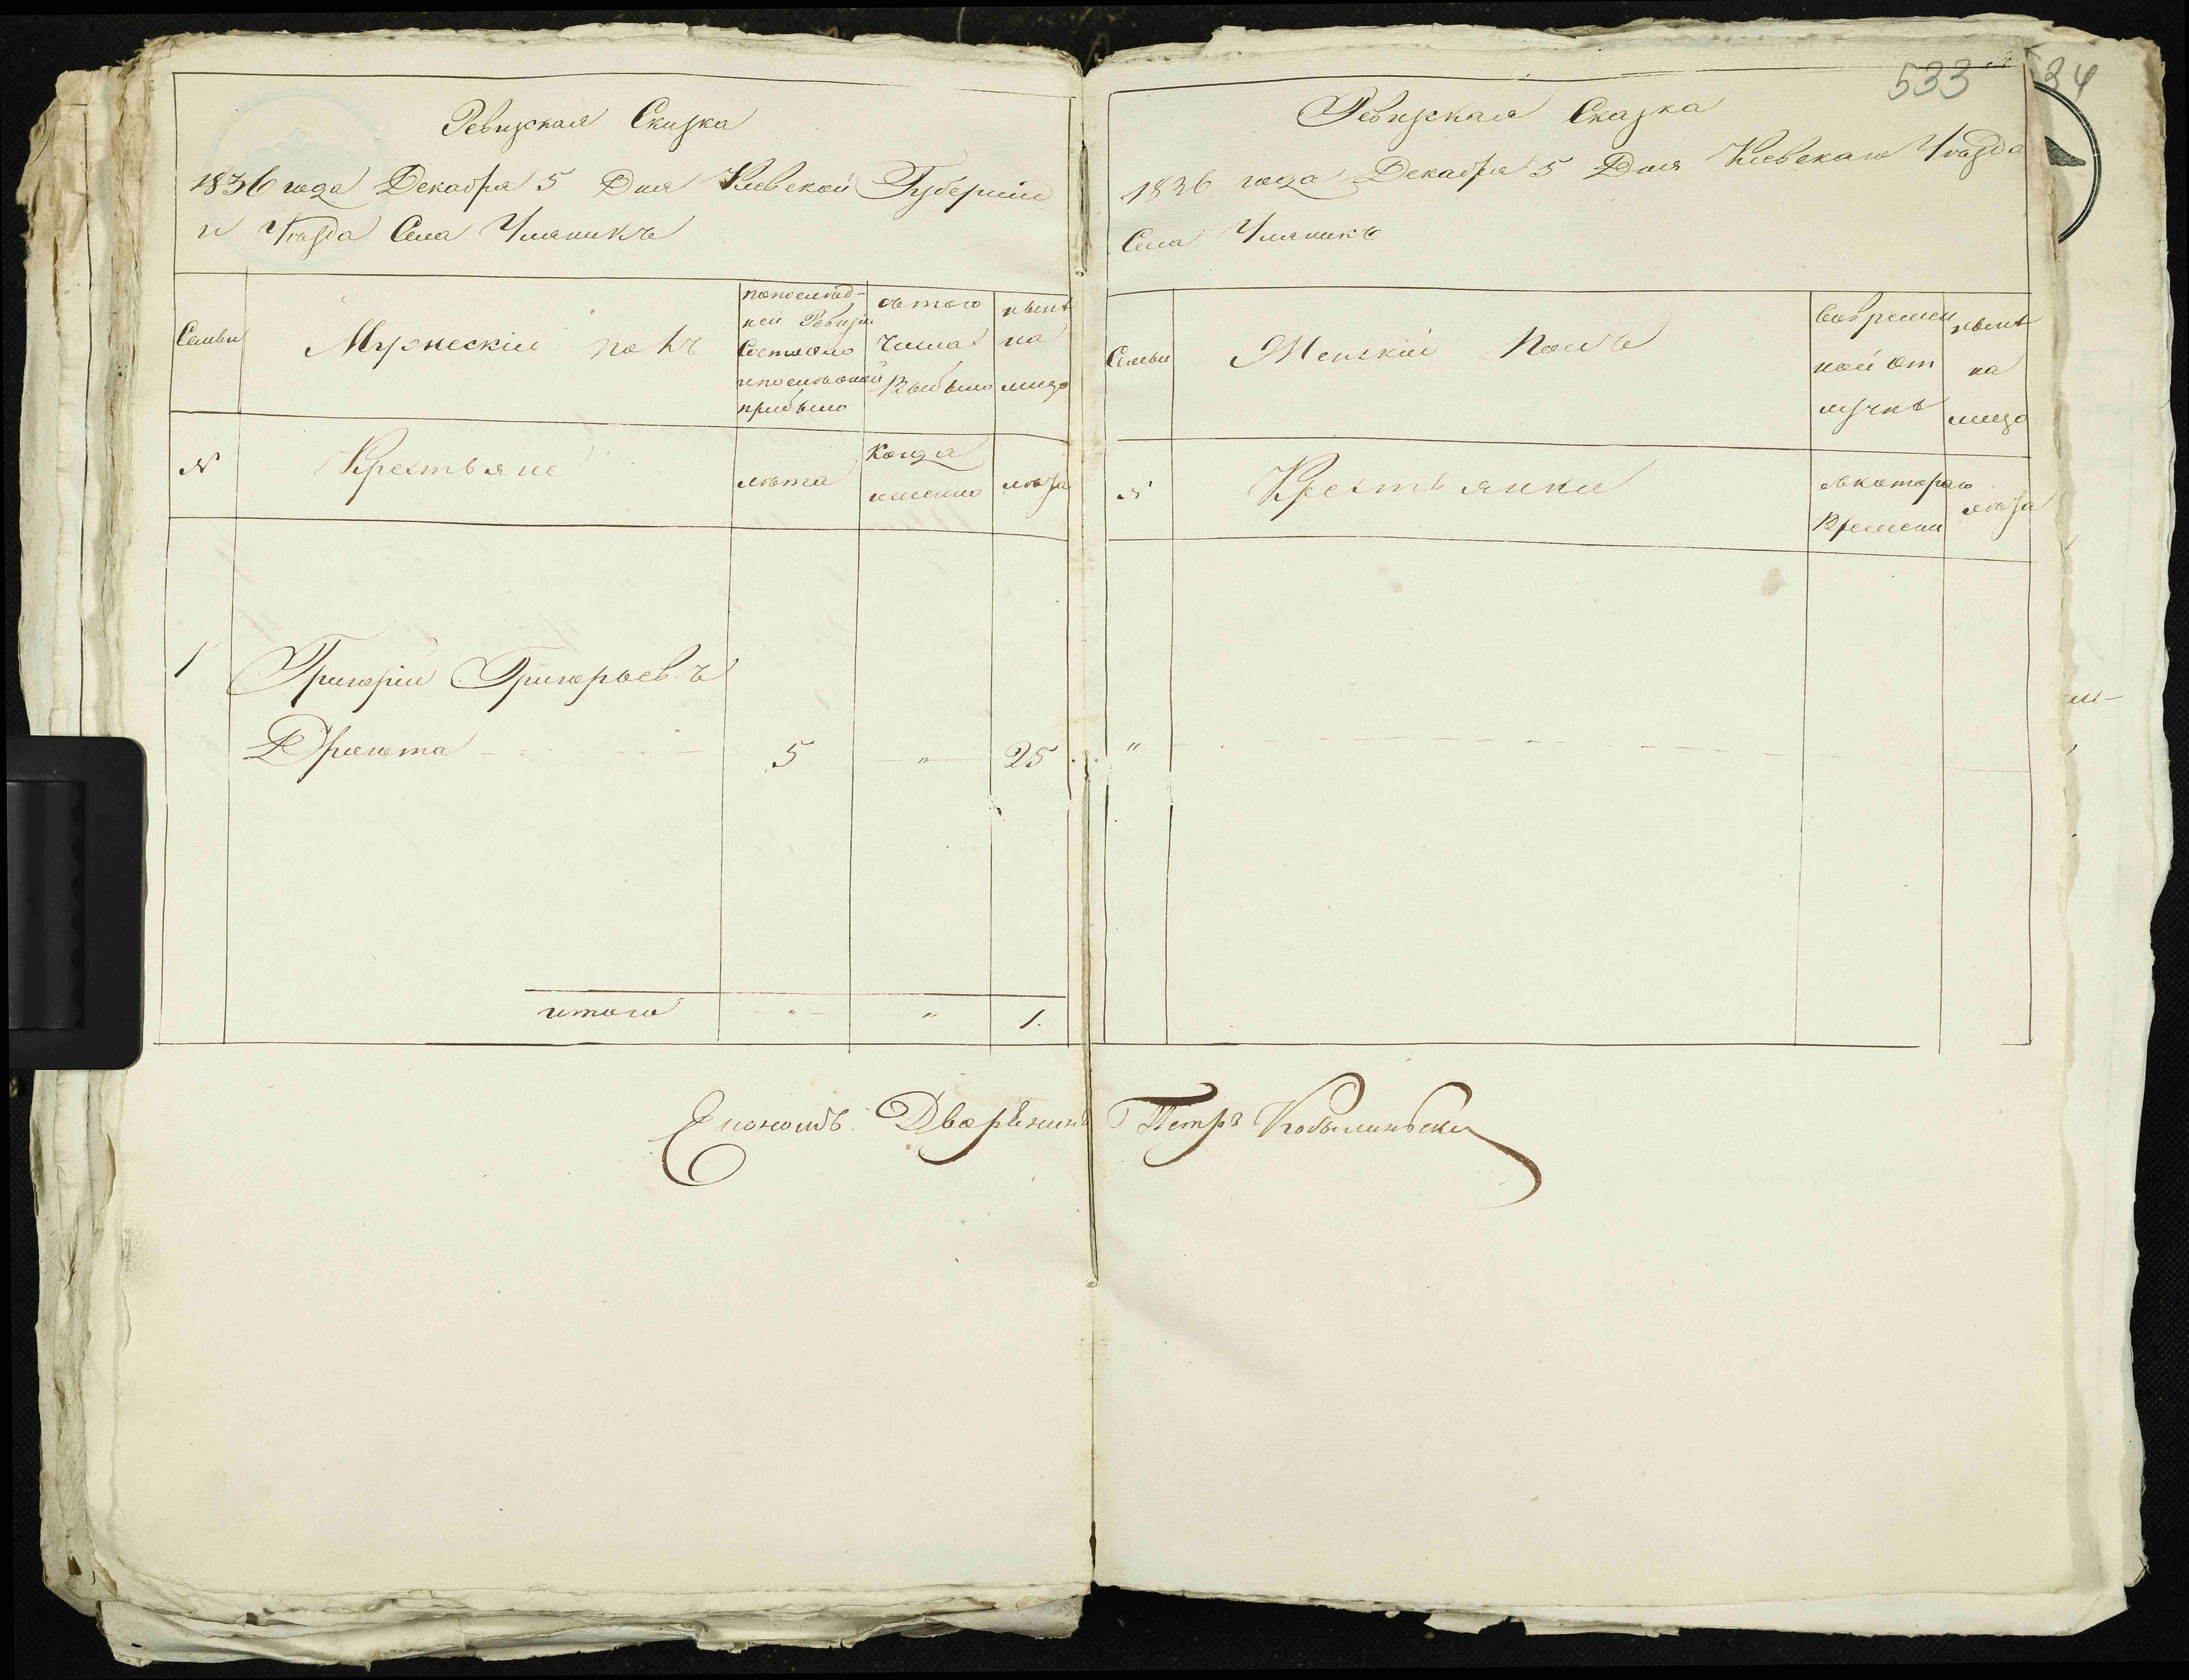 Ревизская Сказка
1836 года Декабря 5 Дня Киевской Губернии
и Уѣзда Села Уляникъ
Семьи
Мужескій полъ
попослѣд-
ней Ревизіи
Состояло
ипослѣоной
прибыло
сътого
числа
Выбыло
нынѣ
на
лицо
№
Крестьяне
лѣта
Когда
именно
лѣта
1
Григорій Григорьевъ
5
"
25
итого
"
"
1.
533
34
Ревизская Сказка
1836 года Декабря 5 Дня Киевскаго Уѣзда
Села Уляникъ
Семьи
Женскій Полъ
Вовремен
ной от
лучкѣ
нынѣ
на
лицо
№
Крестьянки
съкотораго
Времени
лѣта
"
Економъ Дворянинъ Петръ Кобылиньски